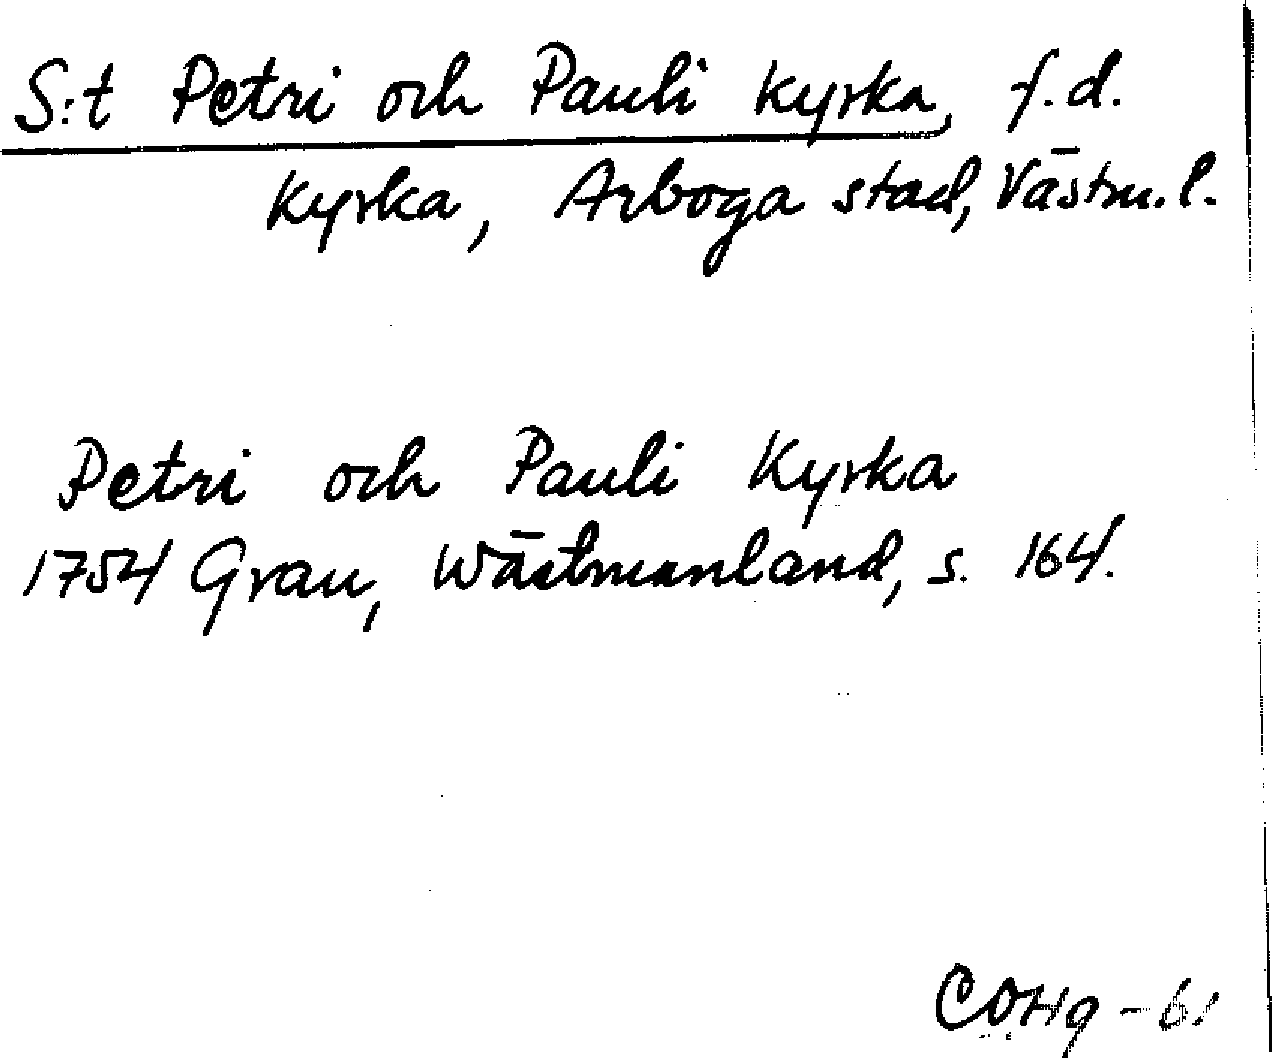 S:t Petri och Pauli kyrka, f.d.
kyrka, Arboga stad, Västm. l.
Petri och Pauli Kyrka
1754 Grau, Wästmanland, s. 164.
COHg -61